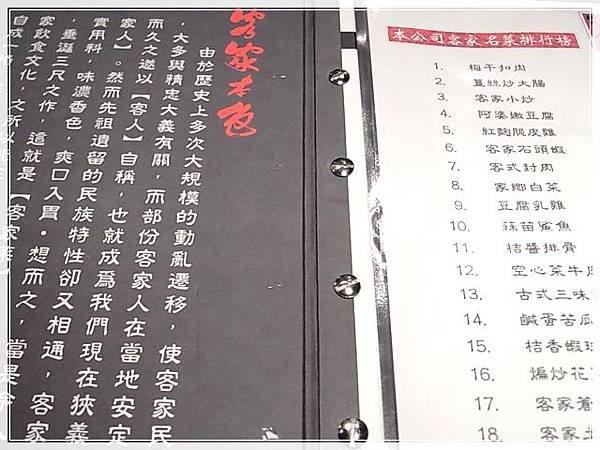 客家本色
由於歷史上多次大規模的動亂遷移，使客家民
，大多與精定大義有關，而部份客家人在當地安定
而久之遂以【客人】自稱，也就成為我們現在狹義
家人】。然而先祖遺留的民族特性卻又相通，客家
實用料，味濃香色，爽口入胃。想而之，當是令
，垂涎三尺之作，這就是【客家菜】
家飲食文化，之所以
自成一格
本公司客家名菜排行榜
1. 梅干扣肉
2. 薑絲炒大腸
3. 客家小炒
4. 阿婆嫩豆腐
5. 紅麴脆皮雞
6. 客家石頭蝦
7. 客式封肉
8. 家鄉白菜
9. 豆腐乳雞
10. 蒜苗鯊魚
11. 桔醬排骨
12. 空心菜牛肉
13. 古式三味
14. 鹹蛋苦瓜
15. 桔香蝦球
16. 煸炒花
17. 客家
18. 客家